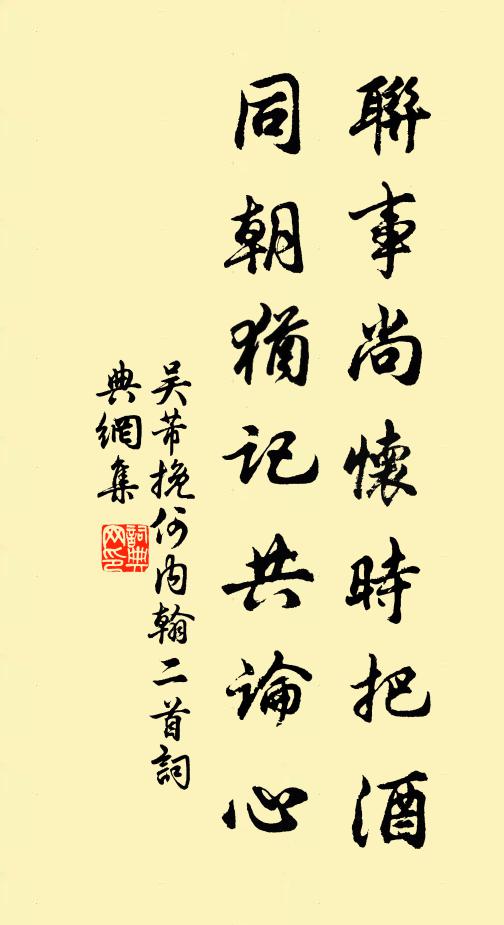 聯事尚懷時把酒
同朝猶記共論心
吳芾挽何內翰二首詞
典網集
詞典
网印